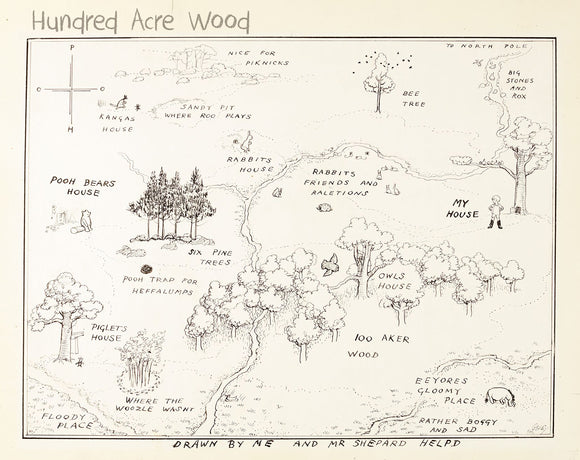 Hundred Acre Wood
P
O
O
H
NICE FOR
PIKNICKS
TO NORTH POLE
BIG
STONES
AND
ROX
BEE
TREE
KANGAS
HOUSE
SANDY PIT
WHERE ROO PLAYS
RABBITS
HOUSE
RABBITS
FRIENDS AND
RALETIONS
POOH BEARS
HOUSE
MY
HOUSE
SIX PINE
TREES
POOH TRAP FOR
HEFFALUMPS
OWLS
HOUSE
PIGLETS
HOUSE
100 AKER
WOOD
WHERE THE
WOOZLE WASNT
FLOODY
PLACE
EEYORES
GLOOMY
PLACE
RATHER BOGGY
AND SAD
DRAWN BY ME AND MR SHEPARD HELPD